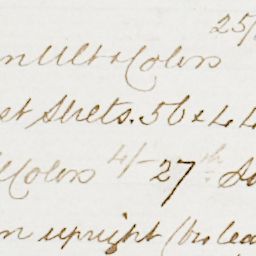 25/
n Ult & Colors
st Strets. 56 x 44
Colors 4/- 27th
n upright (two lea